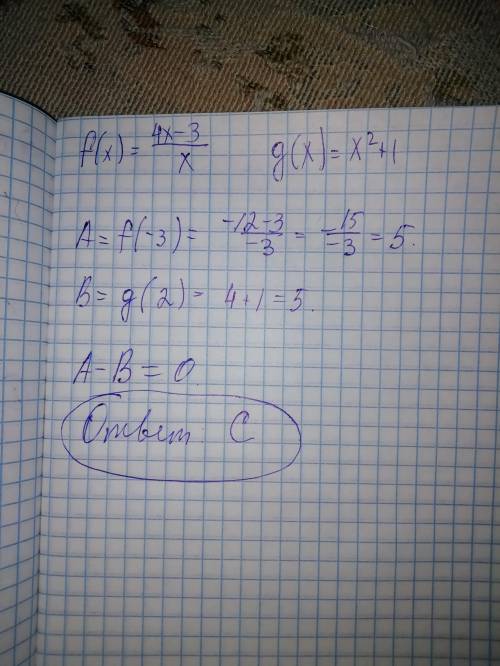 f(x) = (4x-3)/x    g(x) = x²+1
A = f(-3) = (-12-3)/(-3) = (-15)/(-3) = 5.
B = g(2) = 4+1 = 5.
A-B = 0.
Ответ: C